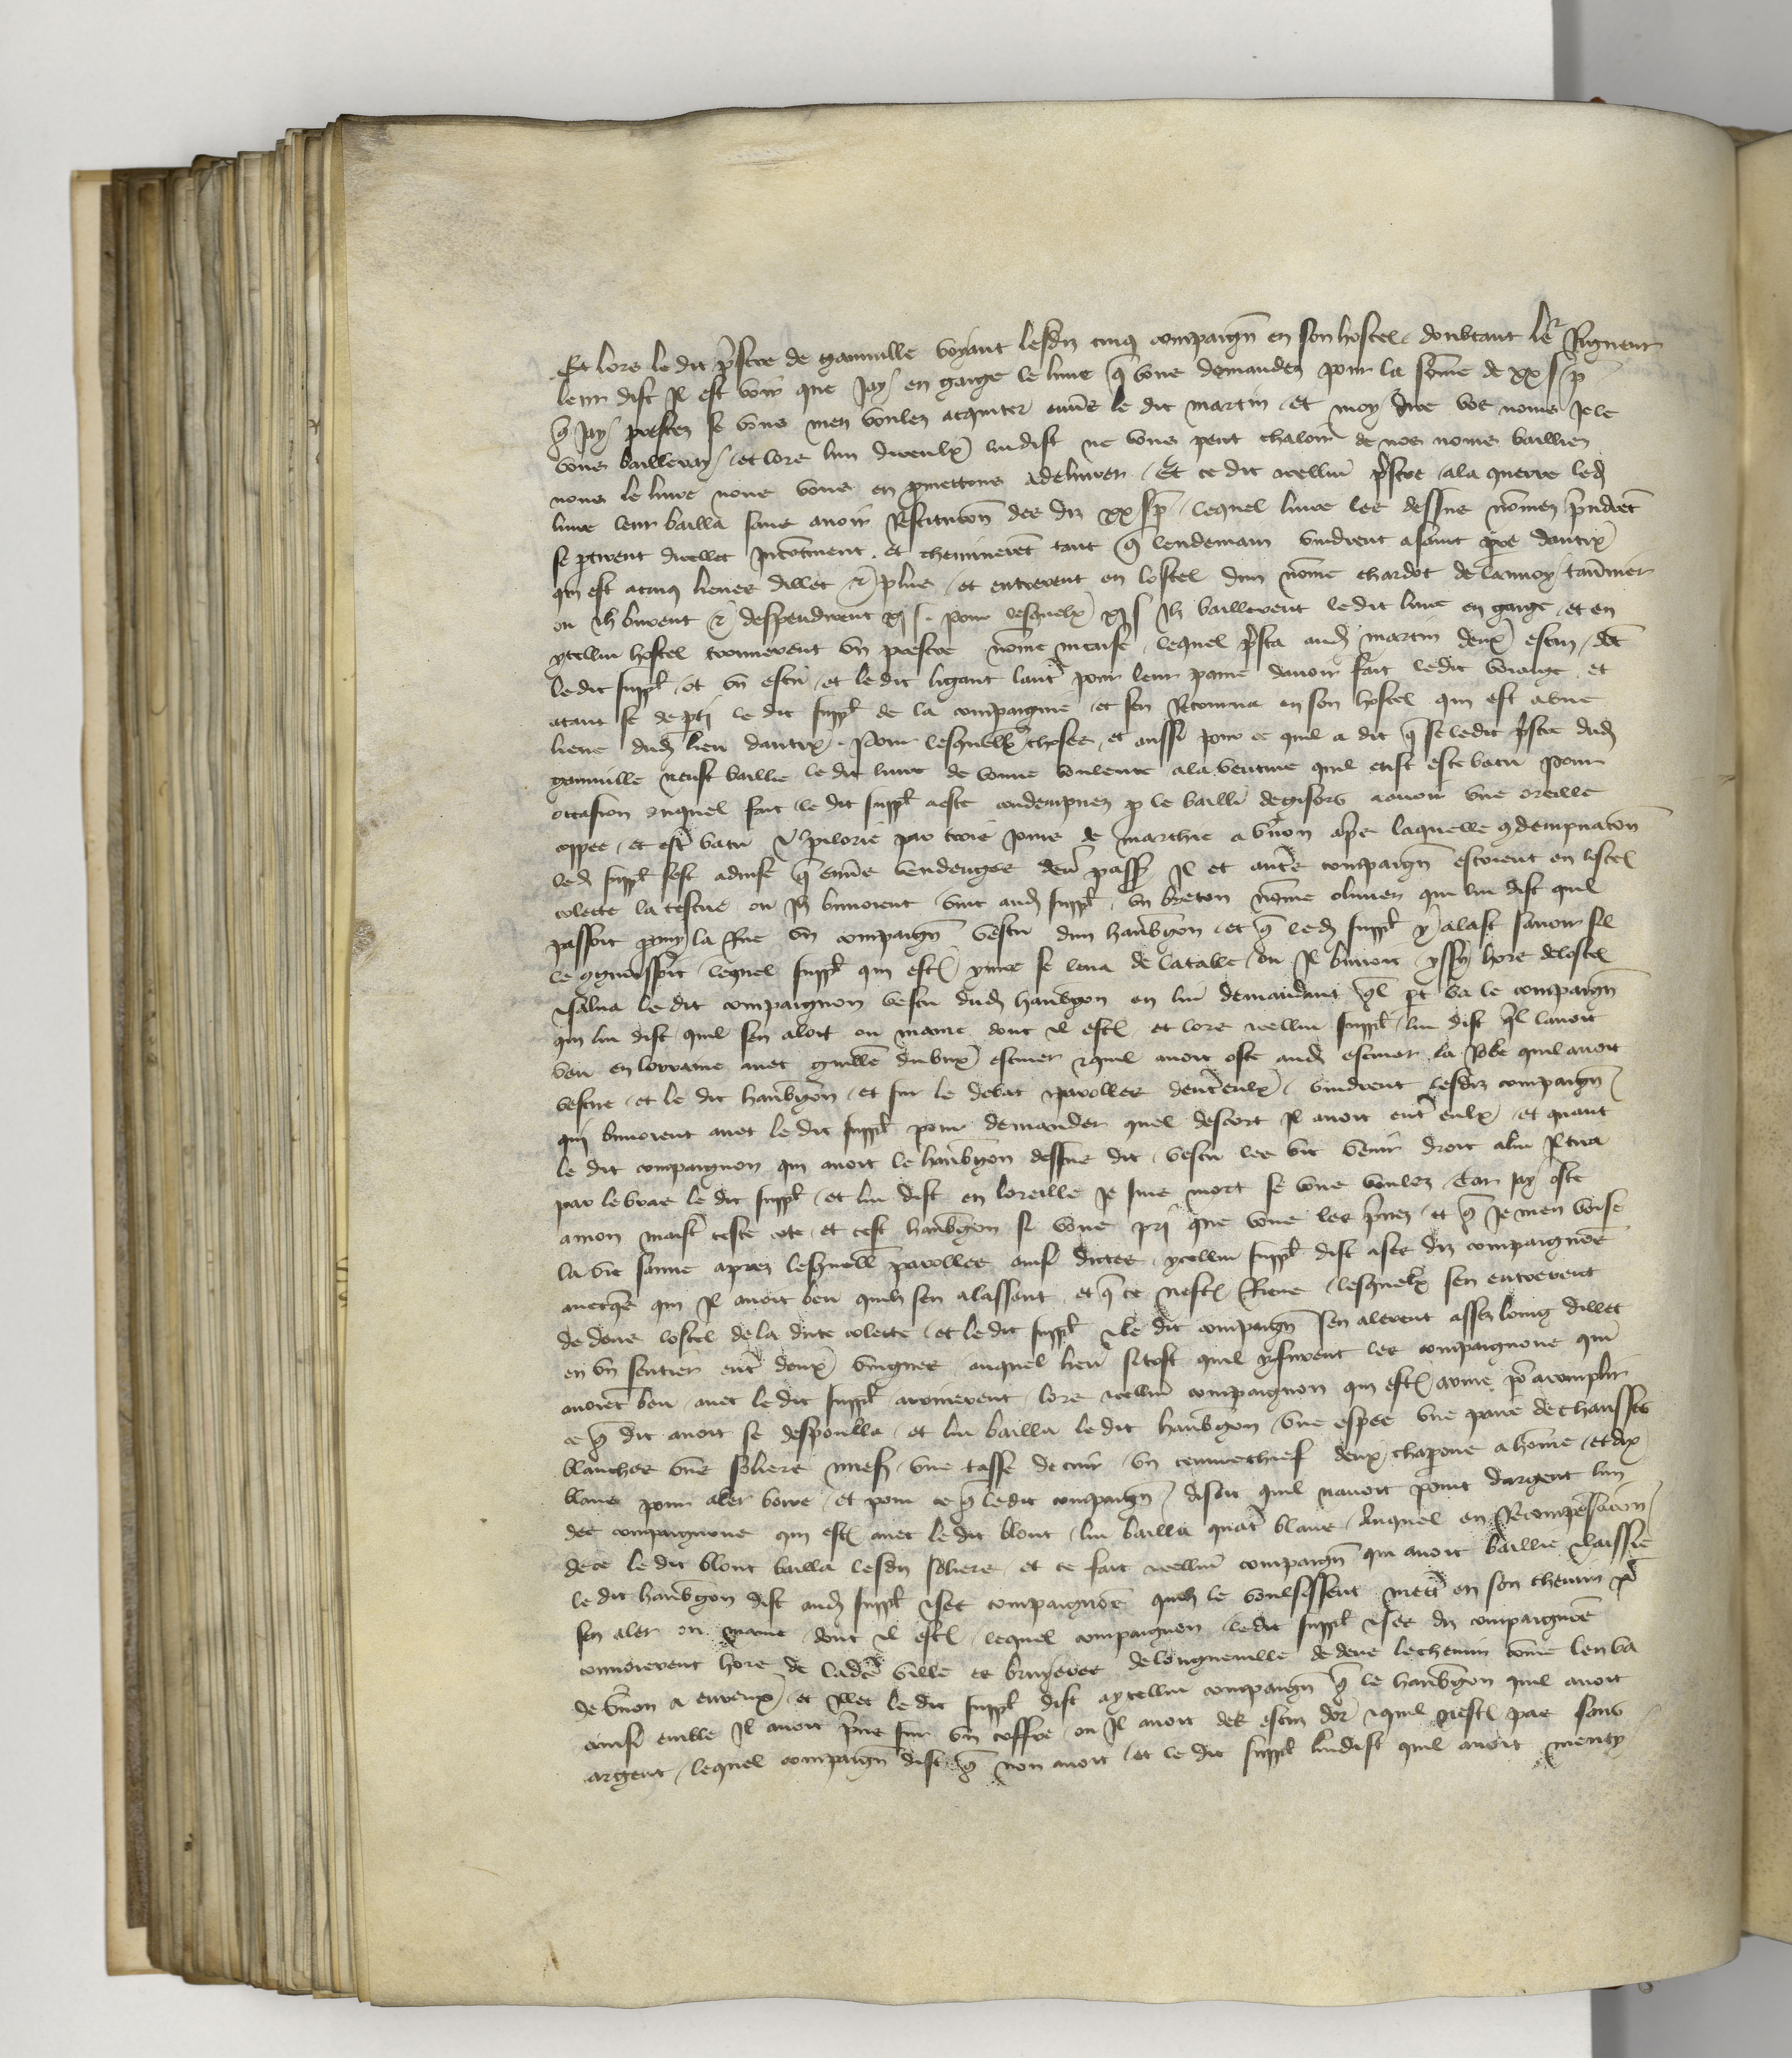 Et lors le dit pbr̃e de gamville voyant lesdiz cinq compaigñ en son hostel doubtant le᷑ Rigueur
leur dist Il est voir que Jay en gaige le livre q̃ vous demandez pour la som̃e de xx s̃ p̃
q̃ Jay prestez se vous men voulez acquiter env̾s le dit martin et moy dire vos noms Je le
vous bailleray et lors lun diceulx lui dist ne vous peut chaloir de nos noms bailliez
nous le livre nous vous en ꝓmettons adelivrer Et ce dit icellui pb̃re ala querre led̾
livre leur bailla sans avoir Restitucion des diz xx s̃ p̃ lequel livre les dessus nom̃ez pñdrẽt
se ꝑtirent dicellec Incõtinent et cheminerẽt tant q̃ lendemain vindrent a saint pre dautix
qui est acinq lieues dillec & plus et entrerent en lostel dun nom̃e chardot de lannoy tav̾nier
ou Ilz burent & despendirent xj s. pour lesquelx xj s Ilz baillerent le dit livre en gaige et en
ycellui hostel trouverent un prestre nom̃e meuse lequel p̃sta aud̾ martin deux escuz dõt
le dit supp̃l ot un escu et le dit ligant laut̃ pour leur paine davoir fait le dit voiaige et
atant se de ꝑti le dit supp̃l de la compaignie et sen Retourna en son hostel qui est a une
lieue dud̾ lieu dautix. Pour lesquelx choses et aussi pour ce quil a dit q̃ se ledit pb̃re dud̾
gamville neust baillie le dit livre de bonne voulente ala venture quil eust este batu pour
occasion duquel fait le dit supp̃l a este condempnez ꝑ le bailli de gisors a avoir une oreille
coppee et est̾ batu & pilorie par trois jours de marchie a v̾non ap̃s laquelle ꝯdempnacion
led̾ supp̃l sest advise q̃ env̾s vendenges den̾ pass̾ Il et aut̾s compaigñ estoient en lostel
colecte la testue ou Ilz buvoient vint aud̾ supp̃l un breton nom̃e olivier qui lui dist quil
passoit ꝑmy la Rue un compaigñ vestu dun haub̾gon et q̃ led̾ supp̃l y alast savoir sil
le ꝯgnoissoit lequel supp̃l qui est̾ yvre se leva de la table ou Il buvoit yssy hors delostel
& salua le dit compaignon vestu dud̾ haub̾gon en lui demandant q̃l ꝑt va le compaigñ
qui lui dist quil sen aloit ou maine dont il est̾ et lors icellui supp̃l lui dist q̃l lavoit
veu en lorraine avec guillẽ dubux escuier & quil avoit oste aud̾ escuier la Robe quil avoit
vestue et le dit haub̾gon et sur le debat & parolles dent̾eulx vindrent lesdiz compaigñ
qui buvoient avec le dit supp̃l pour demander quel descort Il avoit ent̾ eulx et quant
le dit compaignon qui avoit le haub̾gon dessus dit vestu les vit venir droit alui Il tira
par le bras le dit supp̃l et lui dist en loreille Je suis mort se vous voulez Car Jay oste
a mon maist̾ ceste cote et cest haub̾gon si vous pri que vous les p̃nez et q̃ Je men voise
la vie sauve aprez lesquell̾ parolles ainsi dictes ycellui supp̃l dist a ses diz compaignõs
avecq̃s qui Il avoit beu quilz sen alassent et q̃ ce nest̾ Riens lesquelx sen entrerent
de dens lostel de la dicte colecte et le dit supp̃l & le dit compaigñ sen alerent assez loing dillec
en un sentier ent̾ deux vingnes auquel lieu si tost quil y furent les compaignons qui
avoiẽt beu avec le dit supp̃l arriverent lors icellui compaignon qui est̾ arme po᷑ acomplir
ce q̃ dit avoit se despoulla et lui bailla le dit haub̾gon une espee une paire de chausses
blanches uns soliers une tasse de cuir un cueuvrechief deux chapons a hom̃e et dix
blans pour aler boire et pour ce q̃ le dit compaigñ disoit quil navoit point dargent lun
des compaignons qui est̾ avec le dit blont lui bailla quat̾ blans Auquel en Recompẽsacion
de ce le dit blont bailla lesdiz soliers et ce fait icellui compaigñ qui avoit baillie & laissie
le dit haub̾gon dist aud̾ supp̃l & ses compaignõs quilz le voulsissent mett̾ en son chemin po᷑
sen aler ou maine dont il est̾ lequel compaignon le dit supp̃l & ses diz compaignõs
convoierent hors de lad̾ ville es bruyeres de longueville de dens le chemin com̃e len va
de v̾non a evreux et illec le dit supp̃l dist aycellui compaigñ q̃ le haub̾gon quil avoit
ainsi emble Il avoit p̃ns sur un coffre ou Il avoit des escuz dor & quil nest̾ pas sans
argent lequel compaigñ dist q̃ non avoit et le dit supp̃l lui dist quil avoit menty